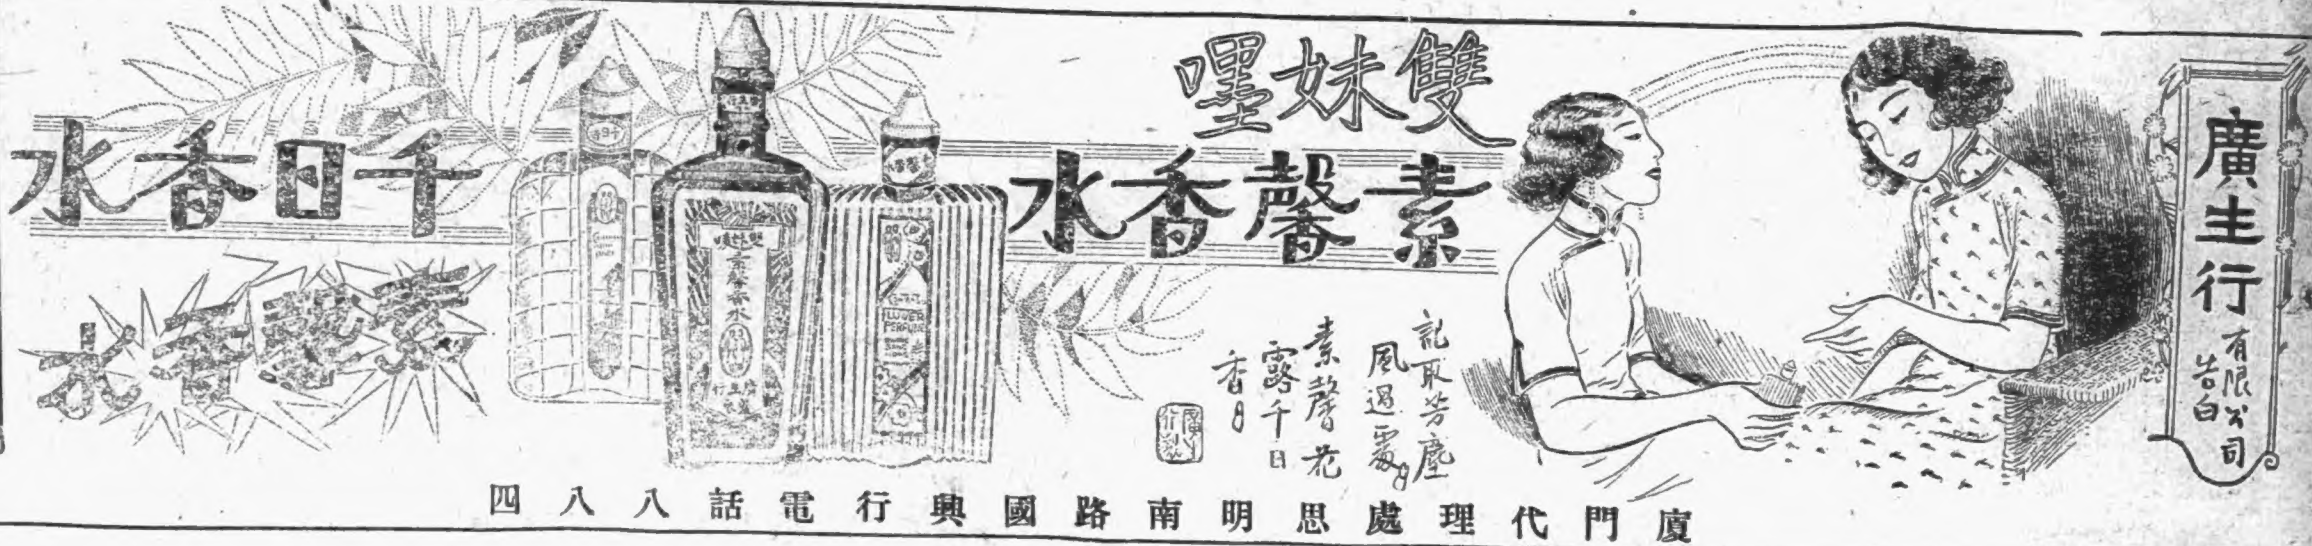 廣生行
有限公司
告白
雙妹嚜
素馨香水
千日香水
素馨香水
記取芳塵
風過處
素馨花
露千日
香
LOVER
PERFUME
廈門代理處思明南路國興行電話八八四